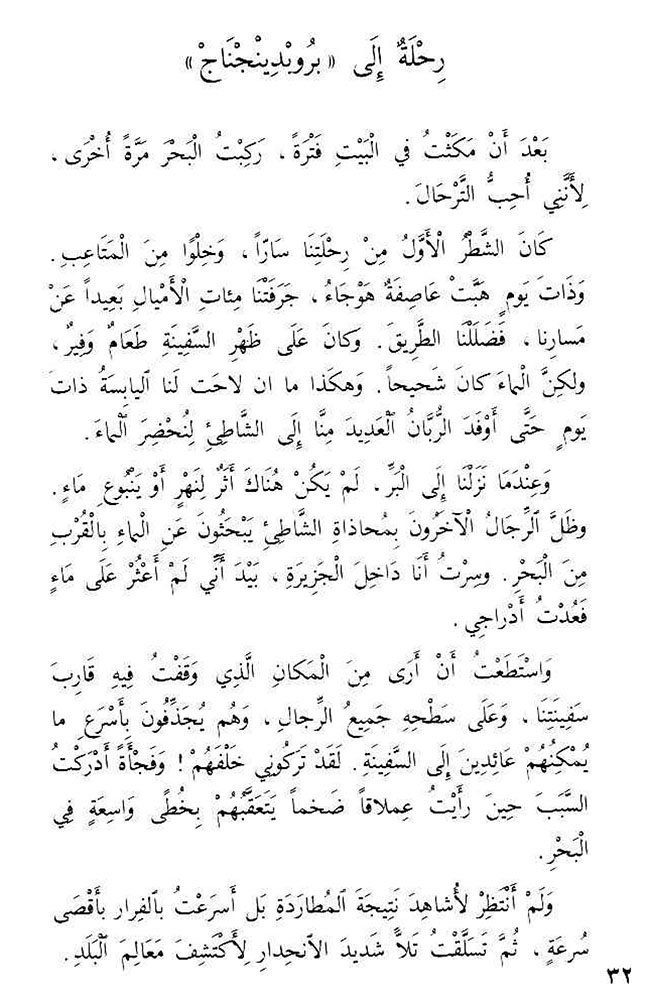 رِحْلَةٌ إِلَى «بْرُوبْدِينْجْنَاجْ»
بَعْدَ أَنْ مَكَثْتُ في الْبَيْتِ فَتْرَةً ، رَكِبْتُ الْبَحْرَ مَرَّةً أُخْرَى ،
لِأَنَّنِي أُحِبُّ التَّرْحَالَ .
كَانَ الشَّطْرُ الْأَوَّلُ مِنْ رِحْلَتِنَا سَارّاً ، وَخِلْوًا مِنَ الْمَتَاعِبِ .
وَذَاتَ يَومٍ هَبَّتْ عَاصِفَةٌ هَوْجَاءُ ، جَرَفَتْنَا مِئاتِ الْأَمْيالِ بَعِيداً عَنْ
مَسارِنا ، فَضَلَلْنَا الطَّرِيقَ . وَكانَ عَلَى ظَهْرِ السَّفِينَةِ طَعَامٌ وَفِيرٌ ،
ولكِنَّ الْماءَ كانَ شَحيحاً . وَهكَذا ما ان لاحَت لَنا ٱليابِسَةُ ذاتَ
يَومٍ حَتَّى أَوْفَدَ الرُّبَّانُ ٱلْعَدِيدَ مِنَّا إِلَى الشَّاطِئِ لِنُحْضِرَ ٱلْماءَ .
وَعِنْدَمَا نَزَلْنَا إِلَى الْبَرِّ ، لَمْ يَكُنْ هُنَاكَ أَثَرٌ لِنَهْرٍ أَوْ يَنْبُوعِ مَاءٍ .
وظَلَّ ٱلرِّجَالُ الْآخَرُونَ بِمُحاذاةِ الشَّاطِئِ يَبْحَثُونَ عَنِ الْماءِ بِالْقُرْبِ
مِنَ الْبَحْرِ . وسِرْتُ أَنَا دَاخِلَ الْجَزِيرَةِ ، بَيْدَ أَنِّي لَمْ أَعْثُرْ عَلَى مَاءٍ
فَعُدْتُ أَدْرَاجِي .
وَاسْتَطَعْتُ أَنْ أَرَى مِنَ الْمَكانِ الَّذِي وَقَفْتُ فِيهِ قَارِبَ
سَفِينَتِنَا ، وَعَلَى سَطْحِهِ جَمِيعُ الرِّجالِ ، وَهُم يُجَذِّفُونَ بِأَسْرَعِ ما
يُمْكِنُهُمْ عَائِدِينَ إِلَى السَّفِينَةِ . لَقَدْ تَرَكُونِي خَلْفَهُمْ ! وَفَجْأَةً أَدْرَكْتُ
السَّبَبَ حِينَ رَأَيْتُ عِملاقاً ضَخماً يَتَعَقَّبُهُمْ بِخُطًى وَاسِعَةٍ فِي
الْبَحْرِ .
وَلَمْ أَنْتَظِرْ لأُشاهِدَ نَتِيجَةَ ٱلمُطارَدَةِ بَل أَسرَعْتُ بٱلفِرارِ بأَقْصَى
سُرعَةٍ ، ثُمَّ تَسَلَّقْتُ تَلاًّ شَديدَ ٱلانحِدارِ لِأَكْتَشِفَ مَعَالِمَ ٱلْبَلَدِ .
٣٢